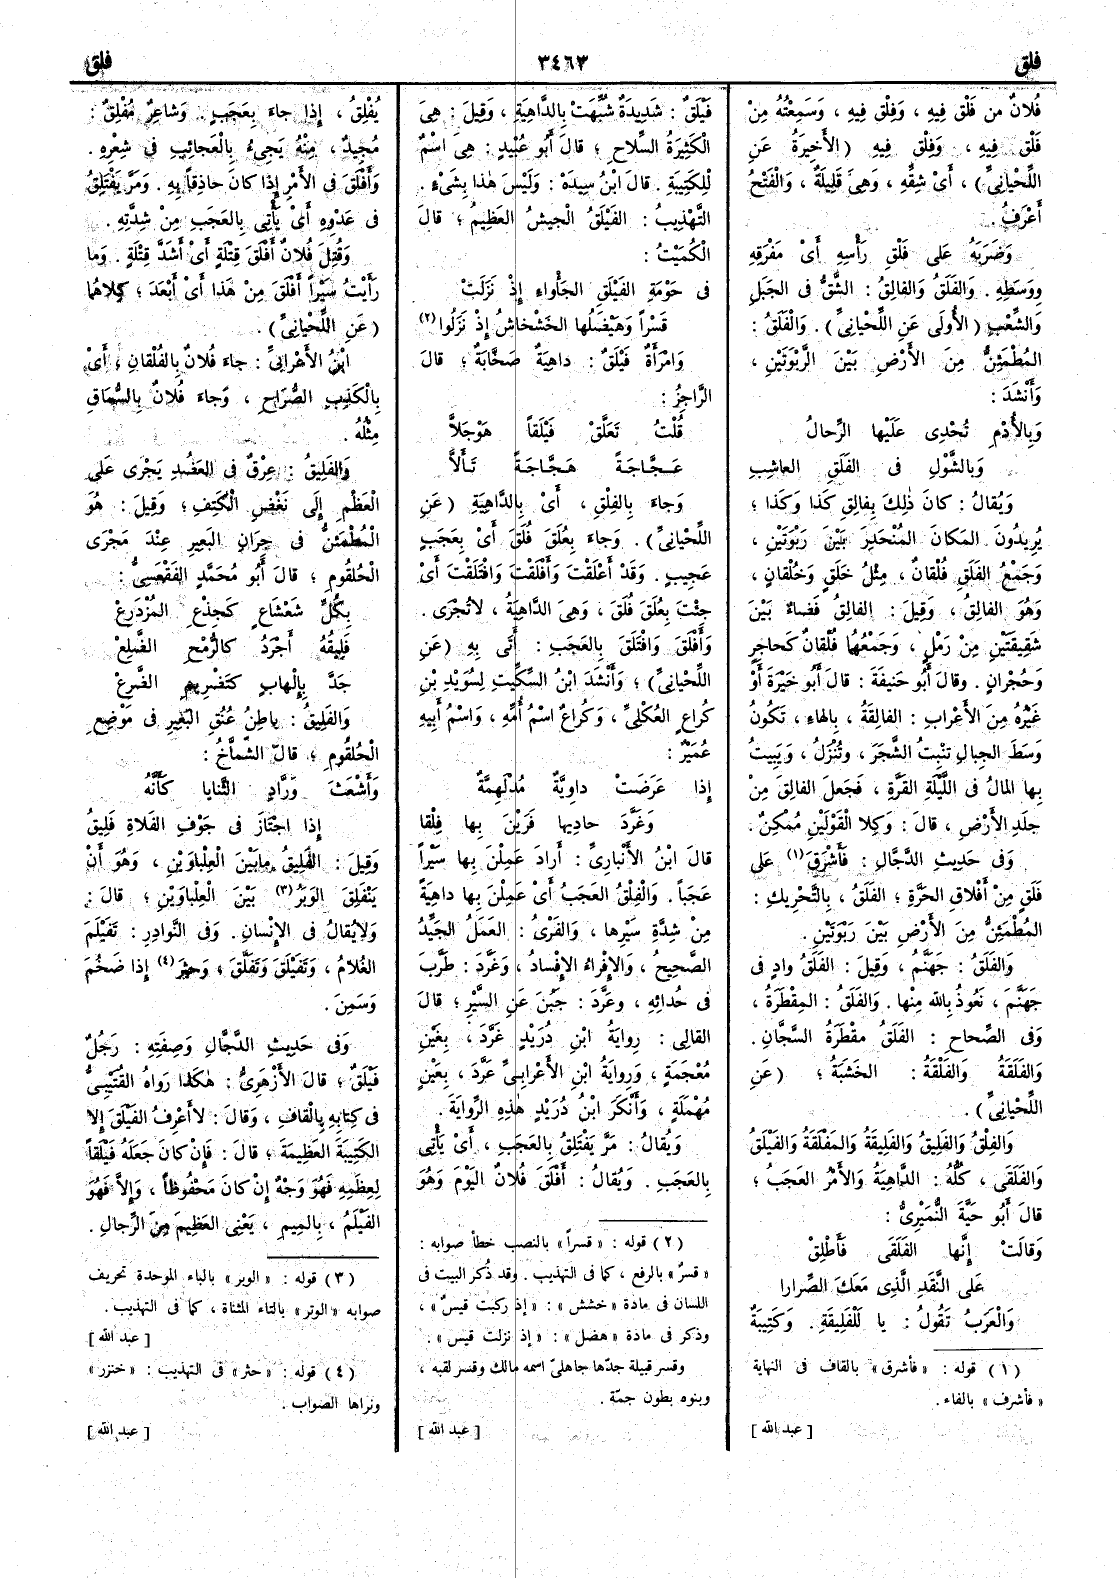 فلق
٣٤٦٣
فلق
فُلانٌ من فَلْقِ فِيهِ ، وَفِلْقِ فِيهِ ، وَسَمِعْتُهُ مِنْ
فَلْقِ فِيهِ ، وَفِلْقِ فِيهِ (الأَخِيرَةُ عَنِ
اللِّحْيانِيِّ) ، أَىْ شِقِّهِ ، وَهِىَ قَلِيلَةٌ ، وَالْفَتْحُ
أَعْرَفُ .
وَضَرَبَهُ عَلَى فَلْقِ رَأْسِهِ أَىْ مَفْرَقِهِ
وَوَسَطِهِ . وَالفَلَقُ وَالفالِقُ : الشَّقُّ فى الجَبَلِ
وَالشِّعْبِ (الأُولَى عَنِ اللِّحْيانِيِّ) . وَالْفَلَقُ :
المُطْمَئِنُّ مِنَ الأَرْضِ بَيْنَ الرَّبْوَتَيْنِ ،
وَأَنْشَدَ :
وَبِالأُدْمِ تُحْدَى عَلَيْها الرِّحالُ
وَبِالشَّوْلِ فى الفَلَقِ العاشِبِ
وَيُقالُ : كانَ ذٰلِكَ بِفالِقِ كَذا وَكَذا ؛
يُرِيدُونَ المَكانَ المُنْحَدِرَ بَيْنَ رَبْوَتَيْنِ ،
وَجَمْعُ الفَلَقِ فُلْقانٌ ، مِثْلُ خَلَقٍ وَخُلْقانٍ ،
وَهُوَ الفالِقُ ، وَقِيلَ : الفالِقُ فَضاءٌ بَيْنَ
شَقِيقَتَيْنِ مِنْ رَمْلٍ ، وَجَمْعُها فُلْقانٌ كَحاجِرٍ
وَحُجْرانٍ . وقالَ أَبُو حَنِيفَةَ : قالَ أَبُو خَيْرَةَ أَوْ
غَيْرُهُ مِنَ الأَعْرابِ : الفالِقَةُ ، بِالهاءِ ، تَكُونُ
وَسَطَ الجِبالِ تُنْبِتُ الشَّجَرَ ، وتُنْزَلُ ، وَيَبِيتُ
بِها المالُ فى اللَّيْلَةِ القَرَّةِ ، فَجَعلَ الفالِقَ مِنْ
جَلَدِ الأَرْضِ ، قالَ : وَكِلا القَوْلَيْنِ مُمْكِنٌ .
وَفى حَدِيثِ الدَّجَّالِ : فَأَشْرَقَ (١) عَلَى
فَلَقٍ مِنْ أَفْلاقِ الحَرَّةِ ؛ الفَلَقُ ، بِالتَّحْرِيكِ :
المُطْمَئِنُّ مِنَ الأَرْضِ بَيْنَ رَبْوَتَيْنِ .
وَالفَلَقُ : جَهَنَّمُ ، وَقِيلَ : الفَلَقُ وادٍ فى
جَهَنَّمَ ، نَعُوذُ بِاللهِ مِنْها . وَالفَلَقُ : المِقْطَرَةُ ،
وَفى الصِّحاحِ : الفَلَقُ مِقْطَرَةُ السَّجَّانِ .
وَالفَلَقَةُ وَالفَلْقَةُ : الخَشَبَةُ ؛ (عَنِ
اللِّحْيانِيِّ) .
وَالفِلْقُ وَالفَلِيقُ وَالفَلِيقَةُ وَالمَفْلَقَةُ وَالفَيْلَقُ
وَالفَلَقَى ، كُلُّهُ : الدَّاهِيَةُ وَالأَمْرُ العَجَبُ ؛
قالَ أَبُو حَيَّةَ النُّمَيْرِيُّ :
وَقالَتْ إِنَّها الفَلَقَى فَأَطْلِقْ
عَلَى النَّقَدِ الَّذِى مَعَكَ الصِّرارا
وَالْعَرَبُ تَقُولُ : يا لَلْفَلِيقَةِ . وَكَتِيبَةٌ
(١) قوله : «فأشرق» بالقاف فى النهاية
«فأشرف» بالفاء .
[ عبد الله ]
فَيْلَقٌ : شَدِيدَةٌ شُبِّهَتْ بِالدَّاهِيَةِ ، وَقِيلَ : هِىَ
الْكَثِيرَةُ السِّلاحِ ؛ قالَ أَبُو عُبَيْدٍ : هِىَ اسْمٌ
لِلْكَتِيبَةِ . قالَ ابْنُ سِيدَهْ : وَلَيْسَ هٰذا بِشَىْءٍ .
التَّهْذِيبُ : الفَيْلَقُ الْجَيشُ العَظِيمُ ؛ قالَ
الْكُمَيْتُ :
فى حَوْمَةِ الفَيْلَقِ الجَأْواءِ إِذْ نَزَلَتْ
قَسْراً وَهَيْضَلُها الخَشْخاشُ إِذْ نَزَلُوا (٢)
وَامْرَأَةٌ فَيْلَقٌ : داهِيَةٌ صَخَّابَةٌ ؛ قالَ
الرَّاجِزُ :
قُلْتُ تَعَلَّقْ فَيْلَقاً هَوْجَلاَّ
عَجَّاجَةً هَجَّاجَةً تَأَلاَّ
وَجاءَ بِالفِلْقِ ، أَىْ بِالدَّاهِيَةِ (عَنِ
اللِّحْيانِيِّ) . وَجاءَ بِعُلَقَ فُلَقَ أَىْ بِعَجَبٍ
عَجِيبٍ . وَقَدْ أَعْلَقْتَ وَأَفْلَقْتَ وَافْتَلَقْتَ أَىْ
جِئْتَ بِعُلَقَ فُلَقَ ، وَهِىَ الدَّاهِيَةُ ، لاتُجْرَى .
وَأَفْلَقَ وَافْتَلَقَ بِالعَجَبِ : أَتَى بِهِ (عَنِ
اللِّحْيانِيِّ) ؛ وَأَنْشَدَ ابْنُ السِّكِّيتِ لِسُوَيْدِ بْنِ
كُراعٍ العُكْلِيِّ ، وَكُراعٌ اسْمُ أُمِّهِ ، وَاسْمُ أَبِيهِ
عُمَيْرٌ :
إِذا عَرَضَتْ داوِيَّةٌ مُدْلَهِمَّةٌ
وَغَرَّدَ حادِيها فَرَيْنَ بِها فِلْقا
قالَ ابْنُ الأَنْبارِيِّ : أَرادَ عَمِلْنَ بِها سَيْراً
عَجَباً . وَالْفِلْقُ العَجَبُ أَىْ عَمِلْنَ بِها داهِيَةً
مِنْ شِدَّةِ سَيْرِها ، وَالفَرْىُ : العَمَلُ الجَيِّدُ
الصَّحِيحُ ، وَالإِفْراءُ الإِفْسادُ ، وَغَرَّدَ : طَرَّبَ
فى حُدائِهِ ، وعَرَّدَ : جَبُنَ عَنِ السَّيْرِ ؛ قالَ
القالِى : رِوايَةُ ابْنِ دُرَيْدٍ غَرَّدَ ، بِغَيْنٍ
مُعْجَمَةٍ ، وَرِوايَةُ ابْنِ الأَعْرابِيِّ عَرَّدَ ، بِعَيْنٍ
مُهْمَلَةٍ ، وَأَنْكَرَ ابْنُ دُرَيْدٍ هٰذِهِ الرِّوايَةَ .
وَيُقالُ : مَرَّ يَفْتَلِقُ بِالعَجَبِ ، أَىْ يَأْتِى
بِالعَجَبِ . وَيُقالُ : أَفْلَقَ فُلانٌ اليَوْمَ وَهُوَ
(٢) قوله : «قسراً» بالنصب خطأ صوابه :
«قسرٌ» بالرفع ، كما فى التهذيب . وقد ذُكر البيت فى
اللسان فى مادة «خشش» : «إذ ركبت قيسٌ» ،
وذكر فى مادة «هضل» : «إذ نزلت قيس» .
وقسر قبيلة جدّها جاهلىّ اسمه مالك وقسر لقبه ،
وبنوه بطون جمّة .
[ عبد الله ]
يُفْلِقُ ، إِذا جاءَ بِعَجَبٍ . وَشاعِرٌ مُفْلِقٌ :
مُجِيدٌ ، مِنْهُ يَجِىءُ بِالْعَجائِبِ فى شِعْرِهِ .
وَأَفْلَقَ فى الأَمْرِ إِذا كانَ حاذِقاً بِهِ . وَمَرَّ يَفْتَلِقُ
فى عَدْوِهِ أَىْ يَأْتِى بِالعَجَبِ مِنْ شِدَّتِهِ .
وَقُتِلَ فُلانٌ أَفْلَقَ قِتْلَةٍ أَىْ أَشَدَّ قِتْلَةٍ . وَما
رَأَيْتُ سَيْراً أَفْلَقَ مِنْ هَذا أَىْ أَبْعَدَ ؛ كِلاهُما
(عَنِ اللِّحْيانِيِّ) .
ابْنُ الأَعْرابِيِّ : جاءَ فُلانٌ بِالفُلْقانِ ، أَىْ
بِالْكَذِبِ الصُّرَاحِ ، وَجاءَ فُلانٌ بِالسُّمَاقِ
مِثْلُهُ .
وَالفَلِيقُ : عِرْقٌ فى العَضُدِ يَجْرِى عَلَى
الْعَظْمِ إِلَى نُغْضِ الْكَتِفِ ؛ وَقِيلَ : هُوَ
الْمُطْمَئِنُّ فى جِرانِ البَعِيرِ عِنْدَ مَجْرَى
الْحُلْقومِ ؛ قالَ أَبُو مُحَمَّدٍ الفَقْعَسِيُّ :
بِكُلِّ شَعْشَاعٍ كَجِذْعِ المُزْدَرِعْ
فَلِيقُهُ أَجْرَدُ كالرُّمْحِ الضَّلِعْ
جَدَّ بِإِلْهابٍ كَتَضْرِيمِ الضَّرِعْ
وَالفَلِيقُ : باطِنُ عُنُقِ البَعِيرِ فى مَوْضِعِ
الْحُلْقُومِ ؛ قالَ الشَّمَّاخُ :
وَأَشْعَثَ وَرَّادِ الثَّنايا كَأَنَّهُ
إِذا اجْتازَ فى جَوْفِ الفَلاةِ فَلِيقُ
وَقِيلَ : الفَلِيقُ مابَيْنَ العِلْباوَيْنِ ، وَهُوَ أَنْ
يَنْفَلِقَ الوَبَرُ (٣) بَيْنَ العِلْباوَيْنِ ؛ قالَ :
وَلايُقالُ فى الإِنْسانِ . وَفى النَّوادِرِ : تَفَيْلَمَ
الغُلامُ ، وَتَفَيْلَقَ وَتَفَلَّقَ ، وَحَثِرَ (٤) إِذا ضَخُمَ
وَسَمِنَ .
وَفى حَدِيثِ الدَّجَّالِ وَصِفَتِهِ : رَجُلٌ
فَيْلَقٌ ؛ قالَ الأَزْهَرِيُّ : هٰكَذا رَواهُ القُتَيْبِيُّ
فى كِتابِهِ بِالْقافِ ، وَقالَ : لا أَعْرِفُ الفَيْلَقَ إِلا
الكَتِيبَةَ العَظِيمَةَ ؛ قالَ : فَإِنْ كانَ جَعَلَهُ فَيْلَقاً
لِعِظَمِهِ فَهُوَ وَجْهٌ إِنْ كانَ مَحْفُوظاً ، وَإِلاَّ فَهُوَ
الفَيْلَمُ ، بِالمِيمِ ، يَعْنِى العَظِيمَ مِنَ الرِّجالِ .
(٣) قوله : «الوبر» بالباء الموحدة تحريف
صوابه «الوتر» بالتاء المثناة ، كما فى التهذيب .
[ عبد الله ]
(٤) قوله : «حثر» فى التهذيب : «خنزر»
ونراها الصواب .
[ عبد الله ]